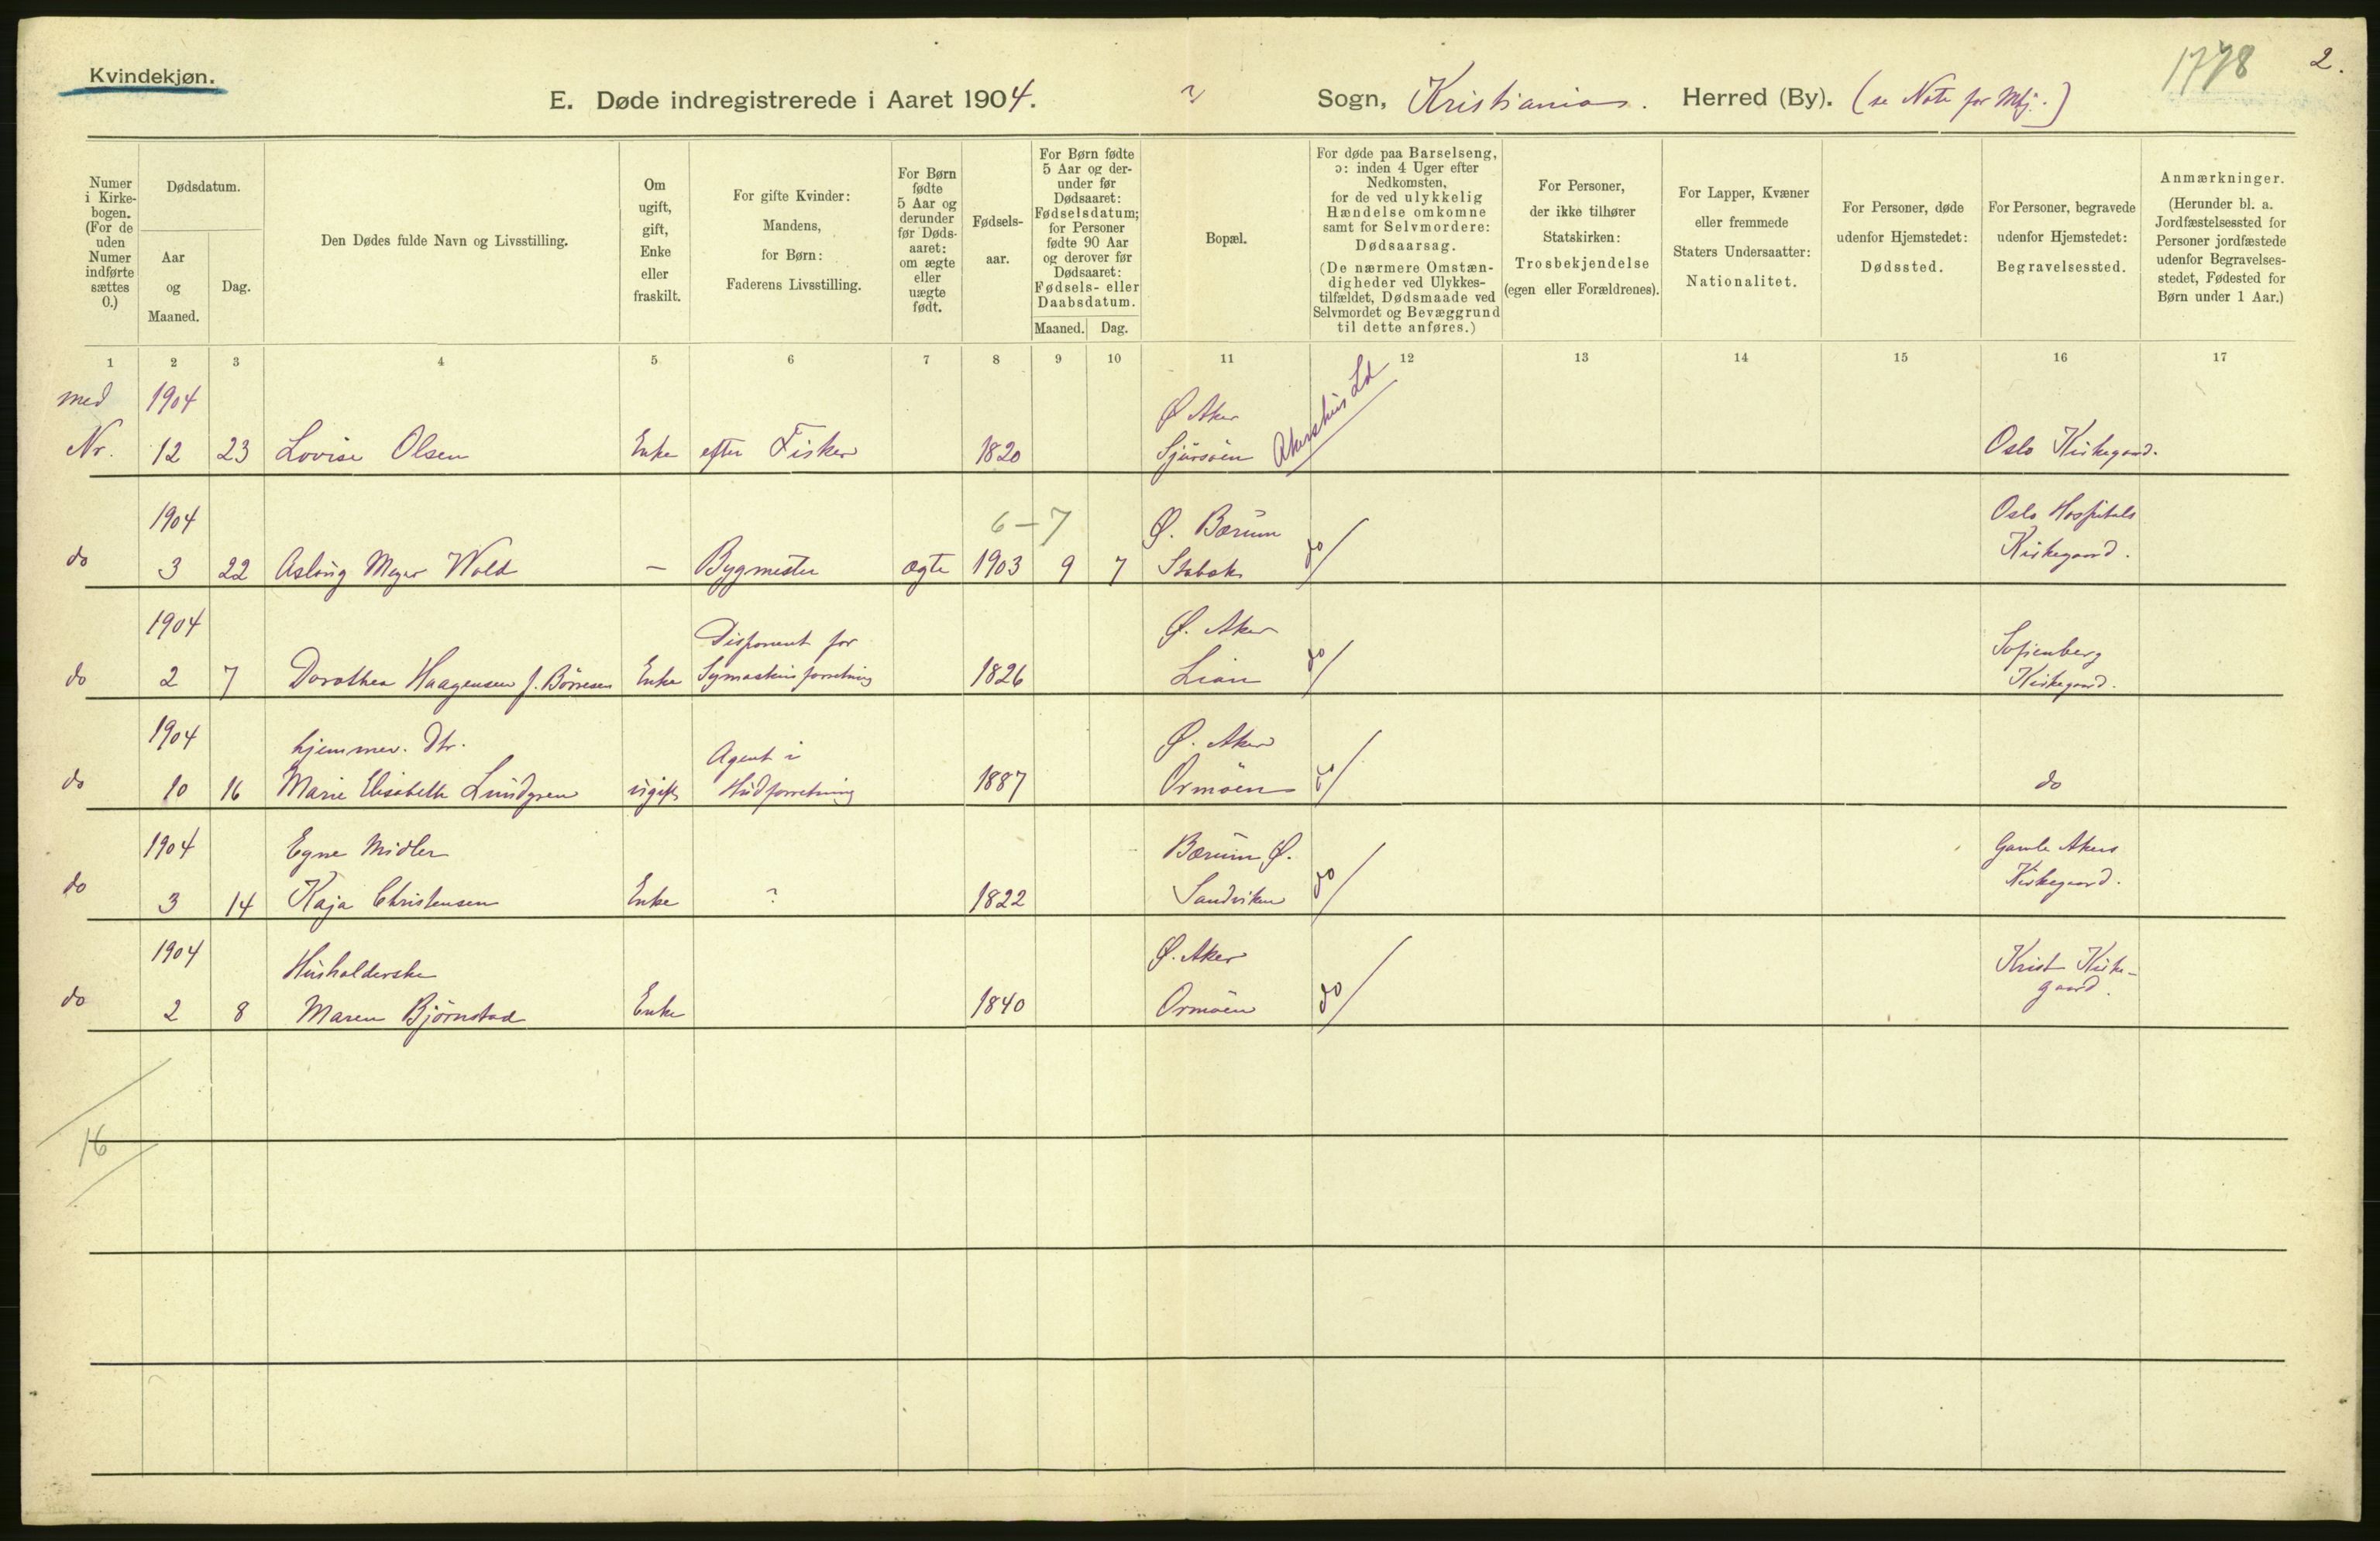 Kvindekjøn.
1778
2.
E. Døde indregistrerede i Aaret 1904. Sogn, Kristiania. Herred (By). (se Note for Mkj.)
Numer i Kirke-bogen. (For de uden Numer indførte sættes 0.)
Dødsdatum.
Aar og Maaned.
Dag.
Den Dødes fulde Navn og Livsstilling.
Om ugift, gift, Enke eller fraskilt.
For gifte Kvinder: Mandens, for Børn: Faderens Livsstilling.
For Børn fødte 5 Aar og derunder før Døds-aaret: om ægte eller uægte født.
Fødsels-aar.
For Børn fødte 5 Aar og der-under før Dødsaaret: Fødselsdatum; for Personer fødte 90 Aar og derover før Dødsaaret: Fødsels- eller Daabsdatum.
Maaned. Dag.
Bopæl.
For døde paa Barselseng, ɔ: inden 4 Uger efter Nedkomsten, for de ved ulykkelig Hændelse omkomne samt for Selvmordere: Dødsaarsag. (De nærmere Omstæn-digheder ved Ulykkes-tilfældet, Dødsmaade ved Selvmordet og Bevæggrund til dette anføres.)
For Personer, der ikke tilhører Statskirken: Trosbekjendelse (egen eller Forældrenes).
For Lapper, Kvæner eller fremmede Staters Undersaatter: Nationalitet.
For Personer, døde udenfor Hjemstedet: Dødssted.
For Personer, begravede udenfor Hjemstedet: Begravelsessted.
Anmærkninger. (Herunder bl. a. Jordfæstelsessted for Personer jordfæstede udenfor Begravelses-stedet, Fødested for Børn under 1 Aar.)
1 2 3 4 5 6 7 8 9 10 11 12 13 14 15 16 17
med 1904 Ø Aker Akershus Ld
Nr. 12 23 Lovise Olsen Enke efter Fisker 1820 Sjursøen Oslo Kirkegaard.
1904 6-7 Ø. Bærum Oslo Hospitals
do 3 22 Aslaug Meyer Wold — Bygmester ægte 1903 9 7 Stabæk do Kirkegaard.
1904 Disponent for Ø. Aker Sofienberg
do 2 7 Dorothea Haagensen f. Börresen Enke Symaskinforretning 1826 Lian do Kirkegaard.
1904 hjemmev. Dtr. Agent i Ø. Aker
do 10 16 Marie Elisabeth Lundgren ugift Hudforretning 1887 Ormøen do do
1904 Egne Midler Bærum Ø. Gamle Akers
do 3 14 Kaja Christensen Enke ? 1822 Sandviken do Kirkegaard.
1904 Husholderske Ø. Aker Krist Kirke-
do 2 8 Maren Bjørnstad Enke 1840 Ormøen do gaard.
16